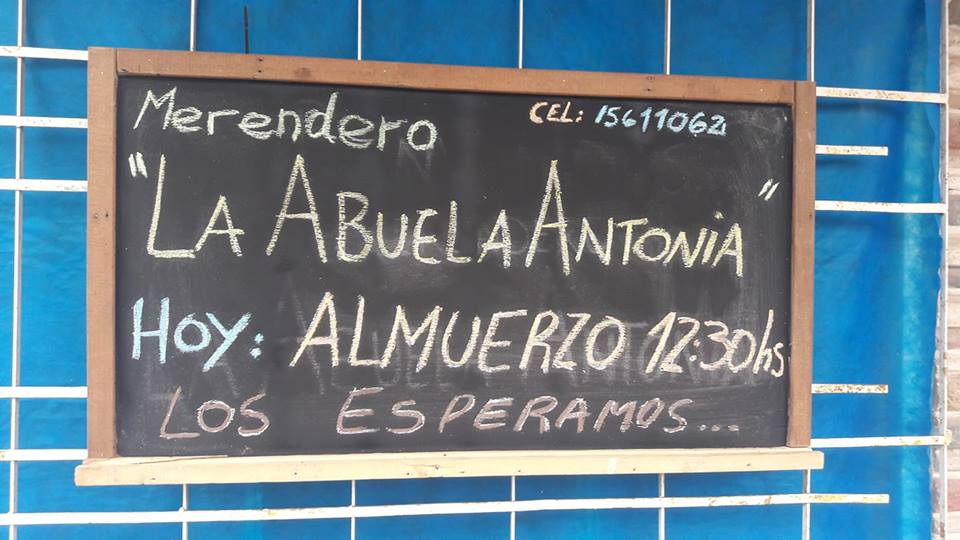 Merendero
CEL: 15611062
"LA ABUELA ANTONIA"
HOY: ALMUERZO 12:30hs
LOS ESPERAMOS...